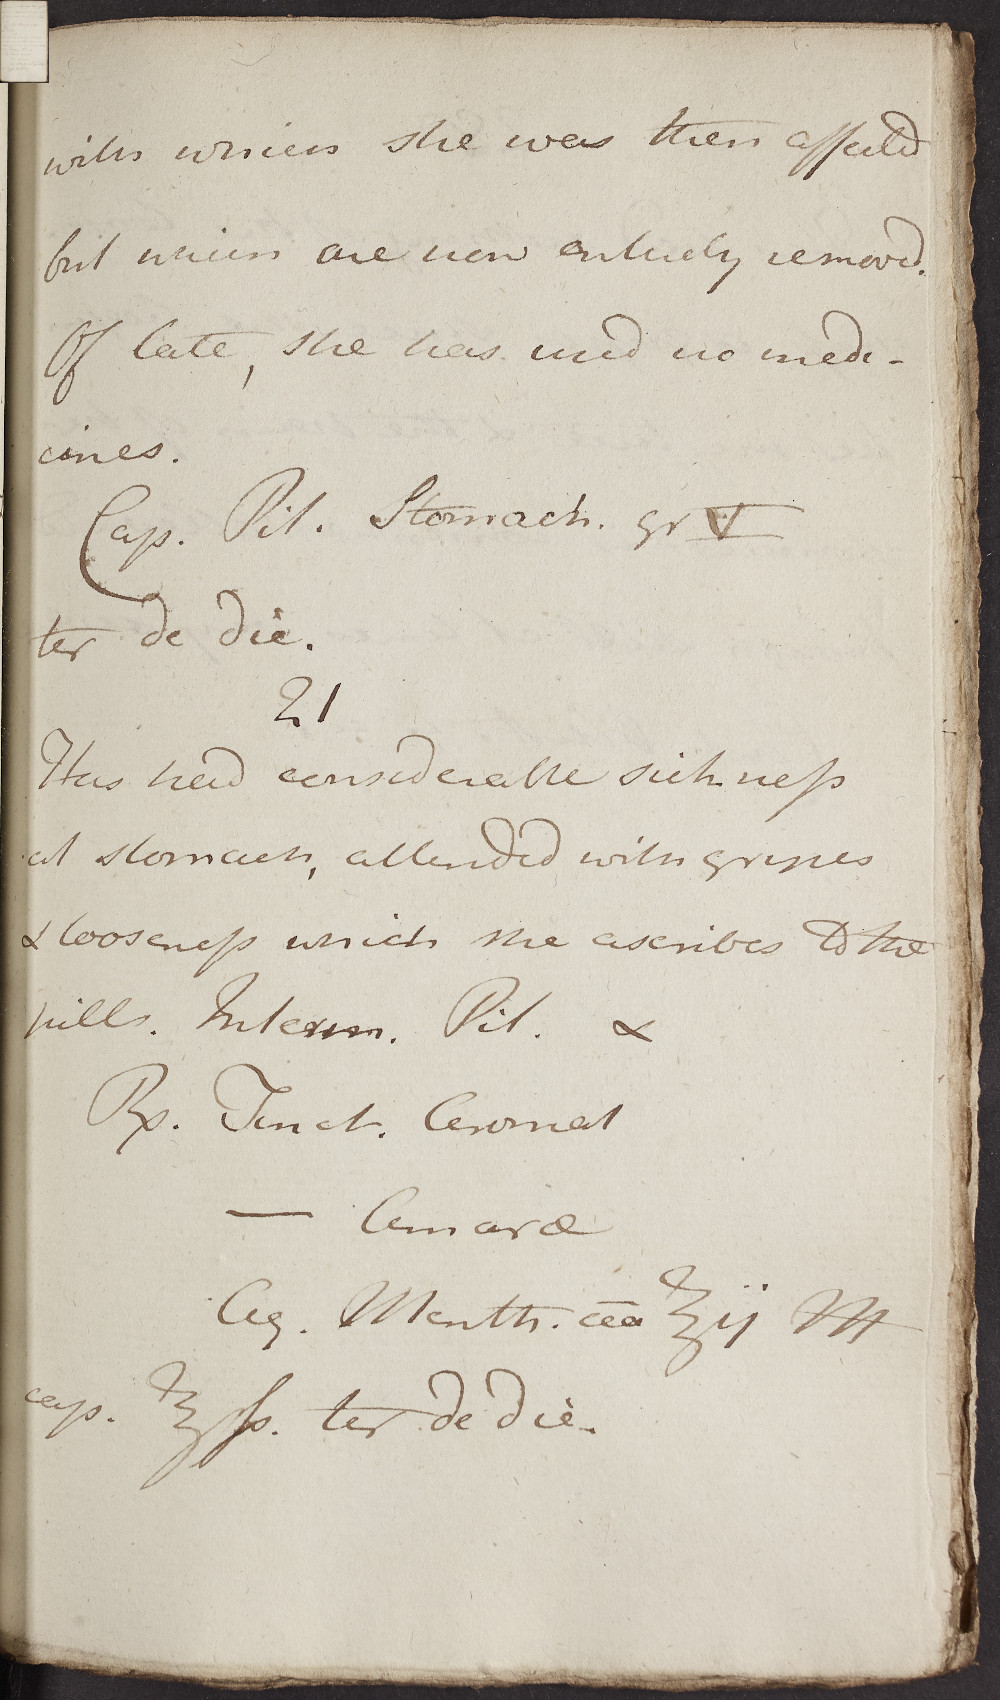 with which she was then affected
but which are now entirely removed.
Of late, she has used no medi-
cines.
Cap. Pil. Stomach. gr V
ter de die.
21
Has had considerable sickness
at stomach, attended with gripes
& looseness which she ascribes to the
pills. Interm. Pil. &
Rx. Tinct. Aromat
— Amaræ
Aq. Menth. āā ℥ij M
cap. ℥ss. ter de die.